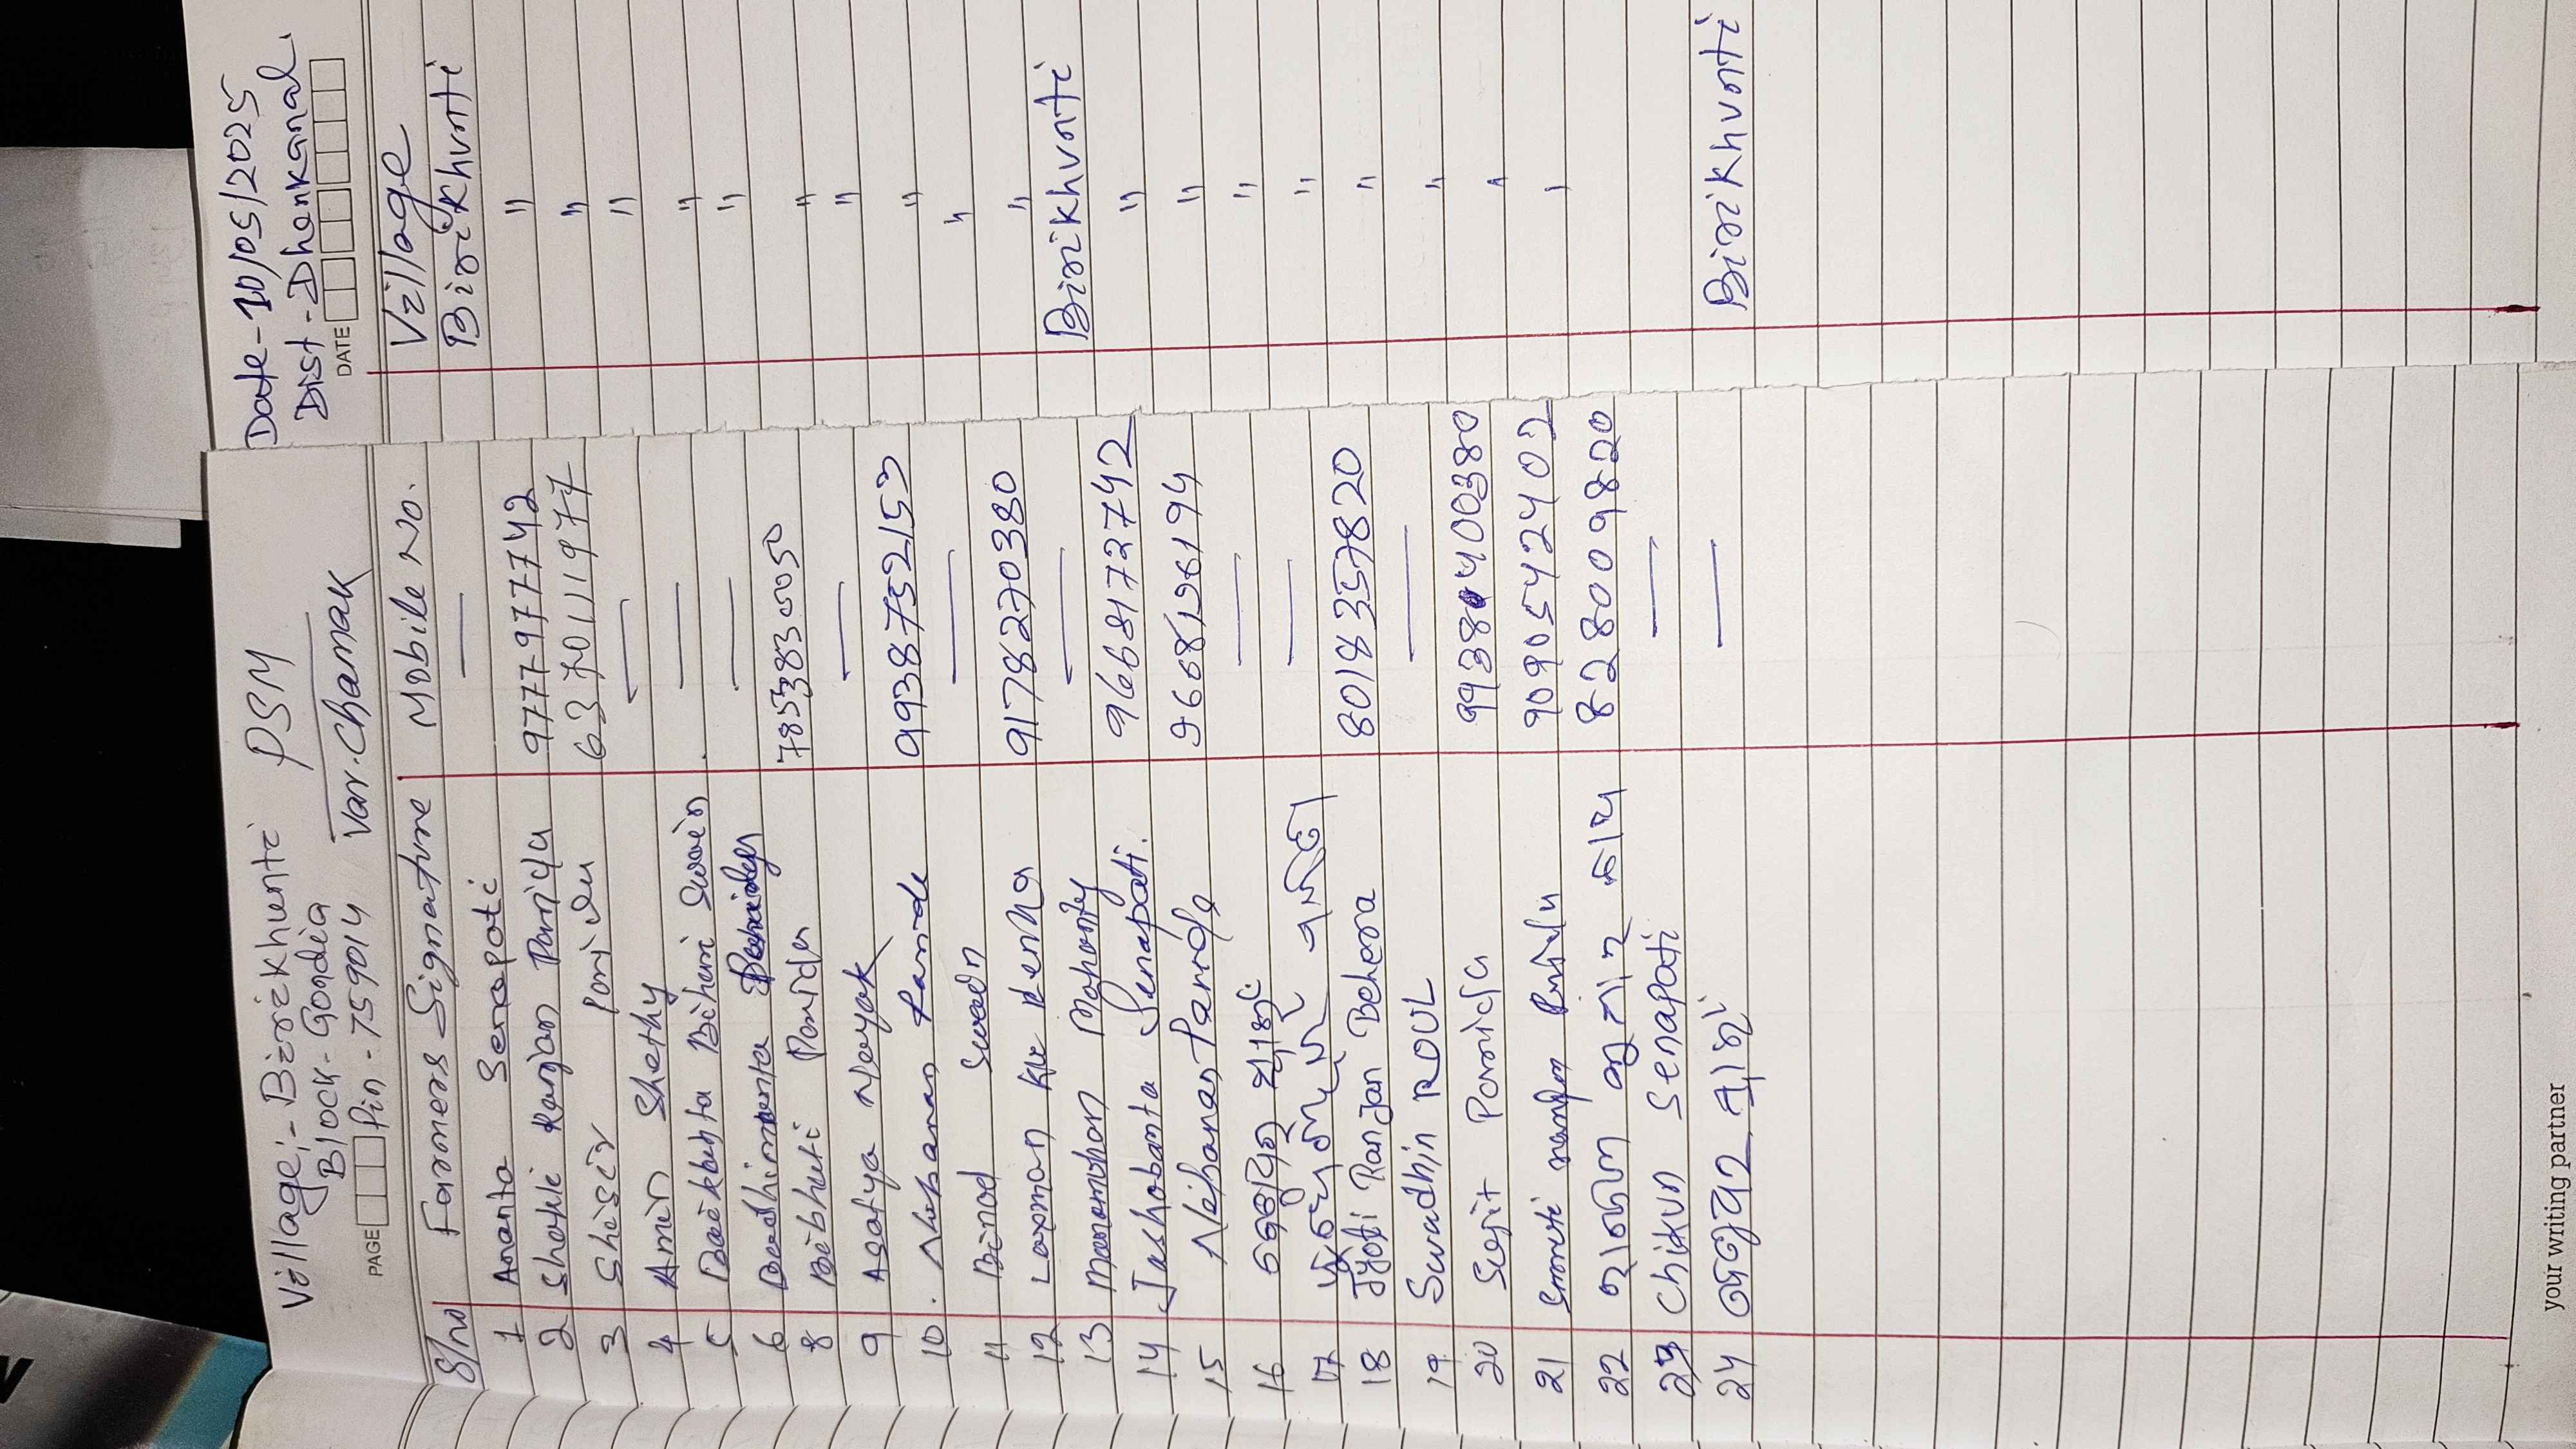 Village:- Birikhunti PSM Date-10/05/2025
Block- Gondia Var. Chamak Dist - Dhenkanal
PAGE Pin - 759014 DATE
S/no Farmers Signature Mobile No. Village
1 Ananta Senapati — Birikhunti
2 Shakti Ranjan Parida 9777977742 "
3 Shisir Parida 6370111977 "
4 Amin Shethy — "
5 Baikuntha Bihari Swain — "
6 — "
8 Bibhuti Parida 7853830050 "
9 Agatya Nayak — "
10. Parida 9938752153 "
11 Binod Swain — "
12 Laxman Kr Jena 9178270380 "
13 Manamohan Mohanty — Birikhunti
14 Jashobanta Senapati. 9668172742 "
15 Parida 9668196194 "
16 — "
17 — "
18 Jyoti Ranjan Behera 8018357820 "
19 Swadhin ROUL — "
20 Sujit Parida 9938400380 "
21 Smruti Parida 9090542402 "
22 828009820
23 Chikun Senapati —
24 — Birikhunti
your writing partner